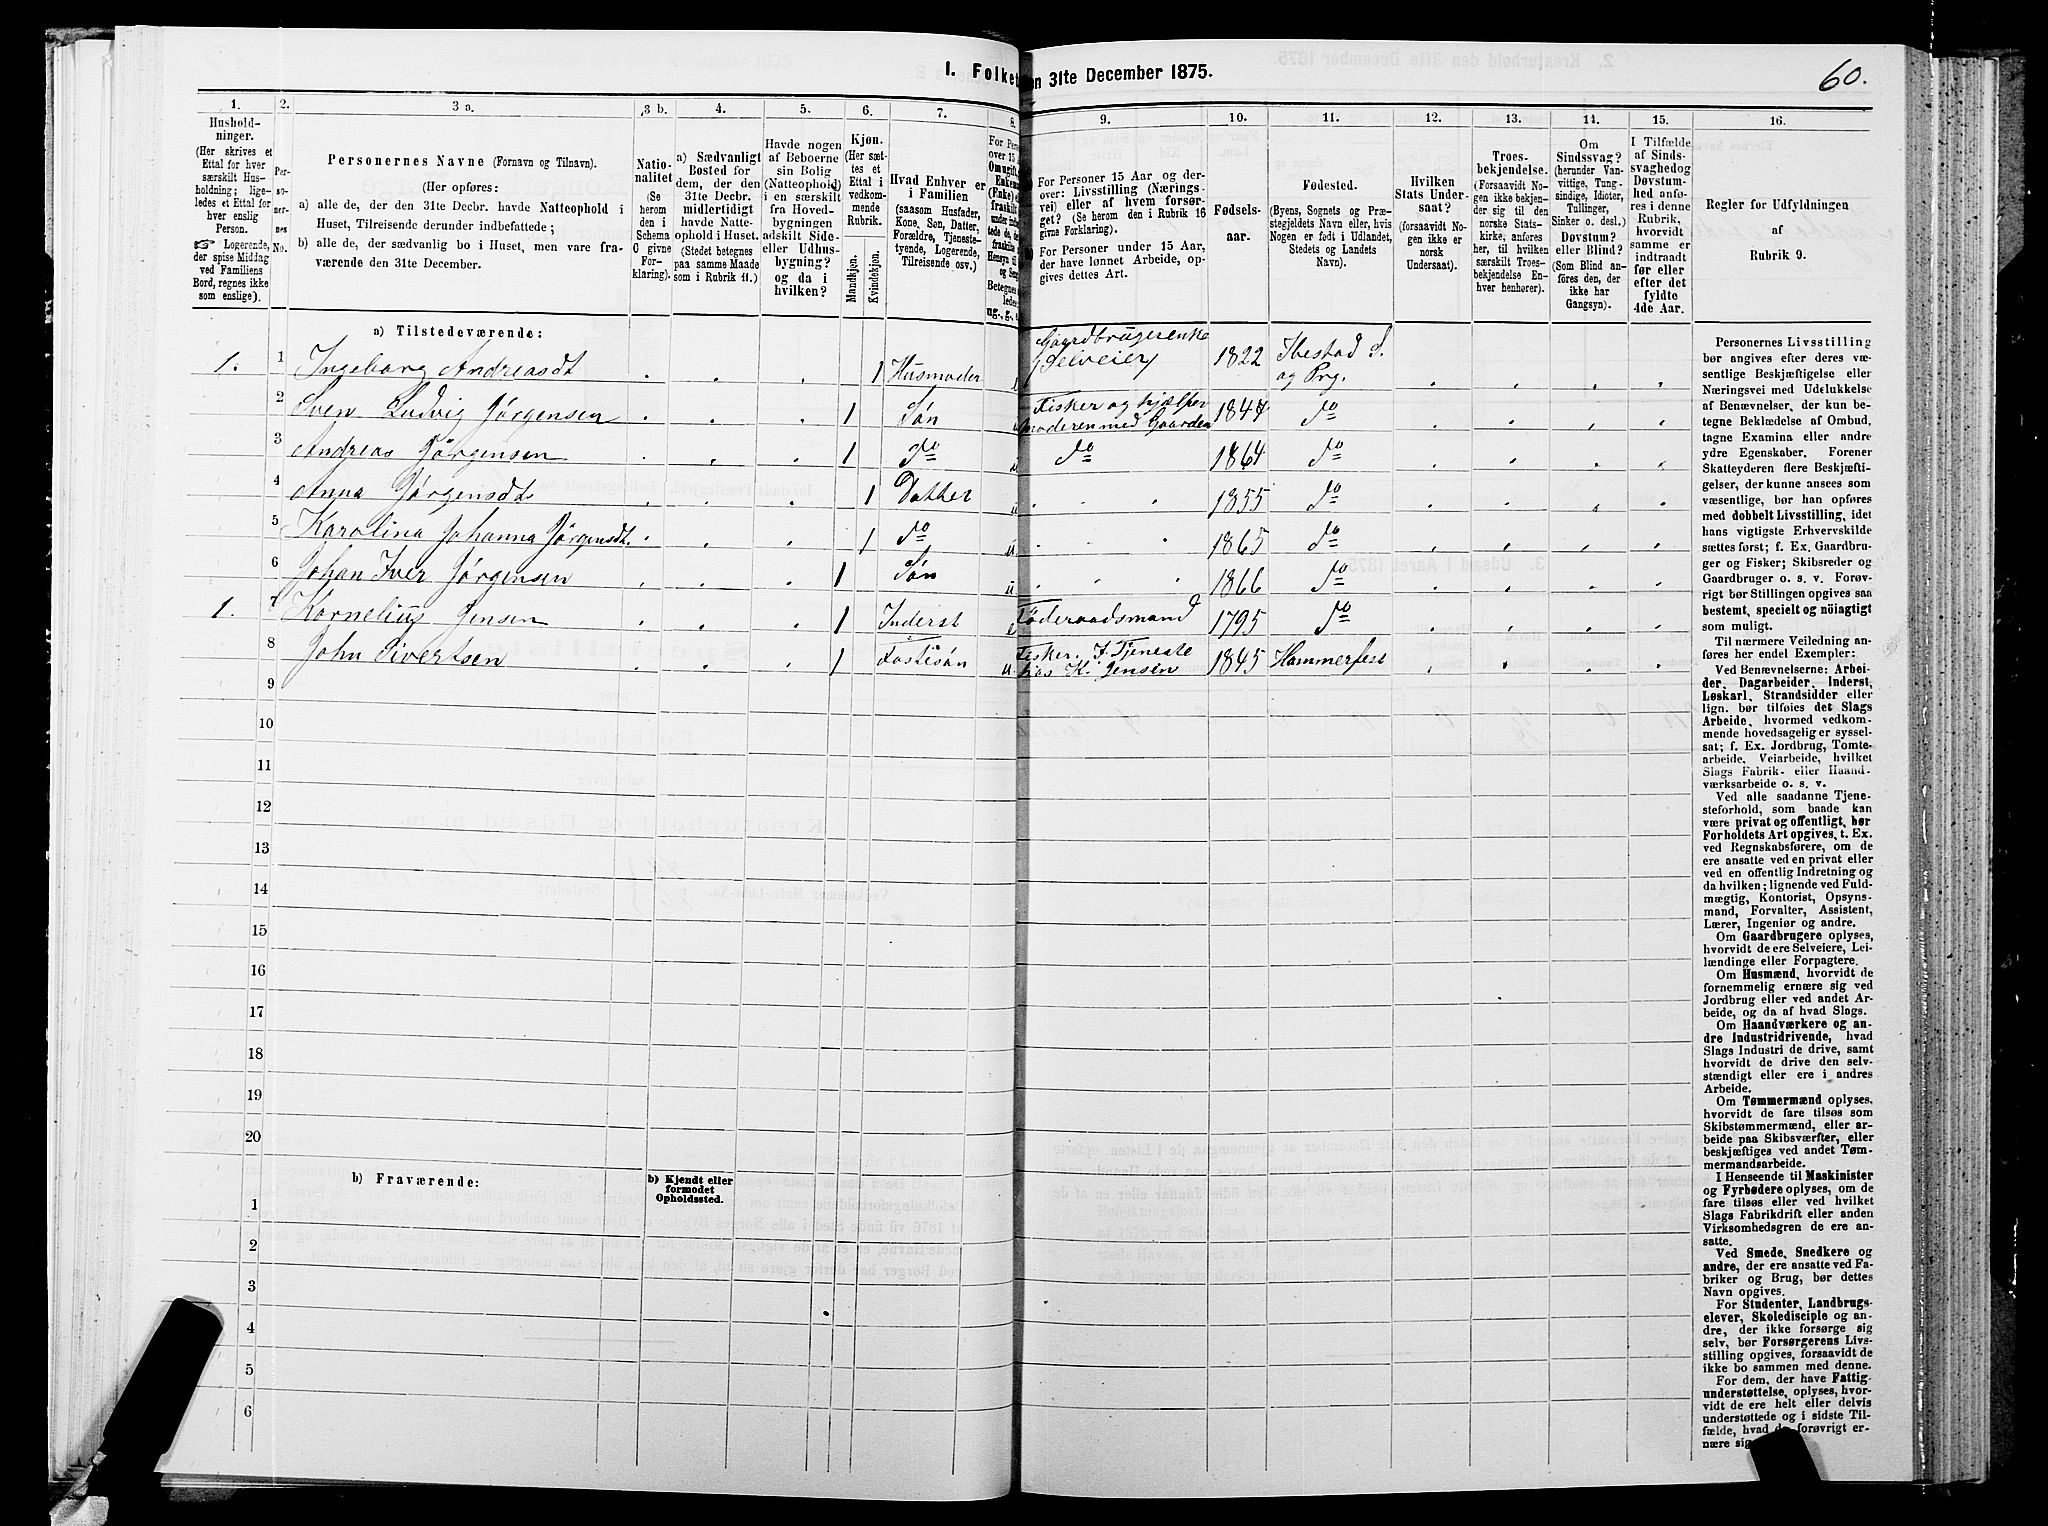 I. Folket
en 31te December 1875.
60.
1. 2. 3 a. 3 b. 4. 5. 6. 7. 8. 9. 10. 11. 12. 13. 14. 15. 16.
Hushold-
ninger.
(Her skrives et
Ettal for hver
særskilt Hus-
holdning; lige-
ledes et Ettal for
hver enslig
Person.
☞ Logerende,
der spise Middag
ved Familiens
Bord, regnes ikke
som enslige).
Per-
so-
ner-
nes
No.
Personernes Navne (Fornavn og Tilnavn).
(Her opføres:
a) alle de, der den 31te Decbr. havde Natteophold i
Huset, Tilreisende derunder indbefattede;
b) alle de, der sædvanlig bo i Huset, men vare fra-
værende den 31te December.
Natio-
nalitet
(Se
herom
den i
Schema
C givne
For-
klaring).
a) Sædvanligt
Bosted for
dem, der den
31te Decbr.
midlertidigt
havde Natte-
ophold i Huset.
(Stedet betegnes
paa samme Maade
som i Rubrik 11.)
Havde nogen
af Beboerne
sin Bolig
(Natteophold)
i en særskilt
fra Hoved-
bygningen
adskilt Side-
eller Udhus-
bygning?
og da i
hvilken?
Kjøn.
(Her sæt-
tes et
Ettal i
vedkom-
mende
Rubrik.
Mandkjøn.
Kvindekjøn.
Hvad Enhver er
i Familien
(saasom Husfader,
Kone, Søn, Datter,
Forældre, Tjeneste-
tyende, Logerende,
Tilreisende osv.)
For Person
over 15 A
Omugift,
Enkem
(Enke) e
fraskilt
under indbe
tede de, de
fraskilte
Hensyn til
og Seng
Betegnes
ledes:
ug., g., e
For Personer 15 Aar og der-
over: Livsstilling (Nærings-
vei) eller af hvem forsør-
get? (Se herom den i Rubrik 16
givne Forklaring).
For Personer under 15 Aar,
der have lønnet Arbeide, op-
gives dettes Art.
Fødsels-
aar.
Fødested.
(Byens, Sognets og Præ-
stegjeldets Navn eller, hvis
Nogen er født i Udlandet,
Stedets og Landets
Navn).
Hvilken
Stats Under-
saat?
(forsaavidt No-
gen ikke er
norsk
Undersaat).
Troes-
bekjendelse.
(Forsaavidt No-
gen ikke bekjen-
der sig til den
norske Stats-
kirke, anføres
her, til hvilken
særskilt Troes-
bekjendelse En-
hver henhører).
Om
Sindssvag?
(herunder Van-
vittige, Tung-
sindige, Idioter,
Tullinger,
Sinker o. desl.)
Døvstum?
eller Blind?
(Som Blind an-
føres den, der
ikke har
Gangsyn).
I Tilfælde
af Sinds-
svaghedog
Døvstum-
hed anfø-
res i denne
Rubrik,
hvorvidt
samme er
indtraadt
før eller
efter det
fyldte
4de Aar.
Regler for Udfyldningen
af
Rubrik 9.
a) Tilstedeværende:
1. 1 Ingeborg Andreasdt . . . 1 Husmoder e Gaardbrugerenke Selveier 1822 Ibestad S. og Prg. . . . .
2 Sven Ludvig Jørgensen . . . 1 Søn u Fisker og hjælper moderen med Gaarden 1847 do . . . .
3 Andreas Jørgensen . . . 1 do u do 1864 do . . . .
4 Anna Jørgensdt . . . 1 Datter u . . . 1855 do . . . .
5 Karolina Johanna Jørgensdt. . . . 1 do u . . . 1865 do . . . .
6 Johan Iver Jørgensen . . . 1 Søn u . . . 1866 do . . . .
1. 7 Kornelius Jensen . . . 1 Inderst e Føderaadsmand 1795 do . . . .
8 John Sivertsen . . . 1 Fostesøn u Fisker. I Tjeneste hos K. Jensen 1845 Hammerfest . . . .
9
10
11
12
13
14
15
16
17
18
19
20
b) Fraværende:
b) Kjendt eller
formodet
Opholdssted.
1
2
3
4
5
6
Personernes Livsstilling
bør angives efter deres væ-
sentlige Beskjæftigelse eller
Næringsvei med Udelukkelse
af Benævnelser, der kun be-
tegne Beklædelse af Ombud,
tagne Examina eller andre
ydre Egenskaber. Forener
Skatteyderen flere Beskjæfti-
gelser, der kunne ansees som
væsentlige, bør han opføres
med dobbelt Livsstilling, idet
hans vigtigste Erhvervskilde
sættes først; f. Ex. Gaardbru-
ger og Fisker; Skibsreder og
Gaardbruger o. s. v. Forøv-
rigt bør Stillingen opgives saa
bestemt, specielt og nöiagtigt
som muligt.
Til nærmere Veiledning an-
føres her endel Exempler:
Ved Benævnelserne: Arbei-
der, Dagarbeider, Inderst,
Løskarl, Strandsidder eller
lign. bør tilføies det Slags
Arbeide, hvormed vedkom-
mende hovedsagelig er syssel-
sat; f. Ex. Jordbrug, Tomte-
arbeide, Veiarbeide, hvilket
Slags Fabrik- eller Haand-
værksarbeide o. s. v.
Ved alle saadanne Tjene-
steforhold, som baade kan
være privat og offentligt, bør
Forholdets Art opgives, t. Ex.
ved Regnskabsførere, om de
ere ansatte ved en privat eller
ved en offentlig Indretning og
da hvilken; lignende ved Fuld-
mægtig, Kontorist, Opsyns-
mand, Forvalter, Assistent,
Lærer, Ingeniør og andre.
Om Gaardbrugere oplyses,
hvorvidt de ere Selveiere, Lei-
lændinge eller Forpagtere.
Om Husmænd, hvorvidt de
fornemmelig ernære sig ved
Jordbrug eller ved andet Ar-
beide, og da af hvad Slags.
Om Haandværkere og an-
dre Industridrivende, hvad
Slags Industri de drive, samt
hvorvidt de drive den selv-
stændigt eller ere i andres
Arbeide.
Om Tømmermænd oplyses,
hvorvidt de fare tilsøs som
Skibstømmermænd, eller ar-
beide paa Skibsværfter, eller
beskjæftiges ved andet Tøm-
mermandsarbeide.
I Henseende til Maskinister
og Fyrbødere oplyses, om de
fare tilsøs eller ved hvilket
Slags Fabrikdrift eller anden
Virksomhedsgren de ere an-
satte.
Ved Smede, Snedkere og
andre, der ere ansatte ved Fa-
briker og Brug, bør dettes
Navn opgives.
For Studenter, Landbrugs-
elever, Skoledisciple og an-
dre, der ikke forsørge sig
selv, bør Forsørgerens Livs-
stilling opgives, forsaavidt de
ikke bo sammen med denne.
For dem, der have Fattig-
understøttelse, oplyses, hvor-
vidt de ere helt eller delvis
understøttede og i sidste Til-
fælde, hvad de forøvrigt er-
nære sig